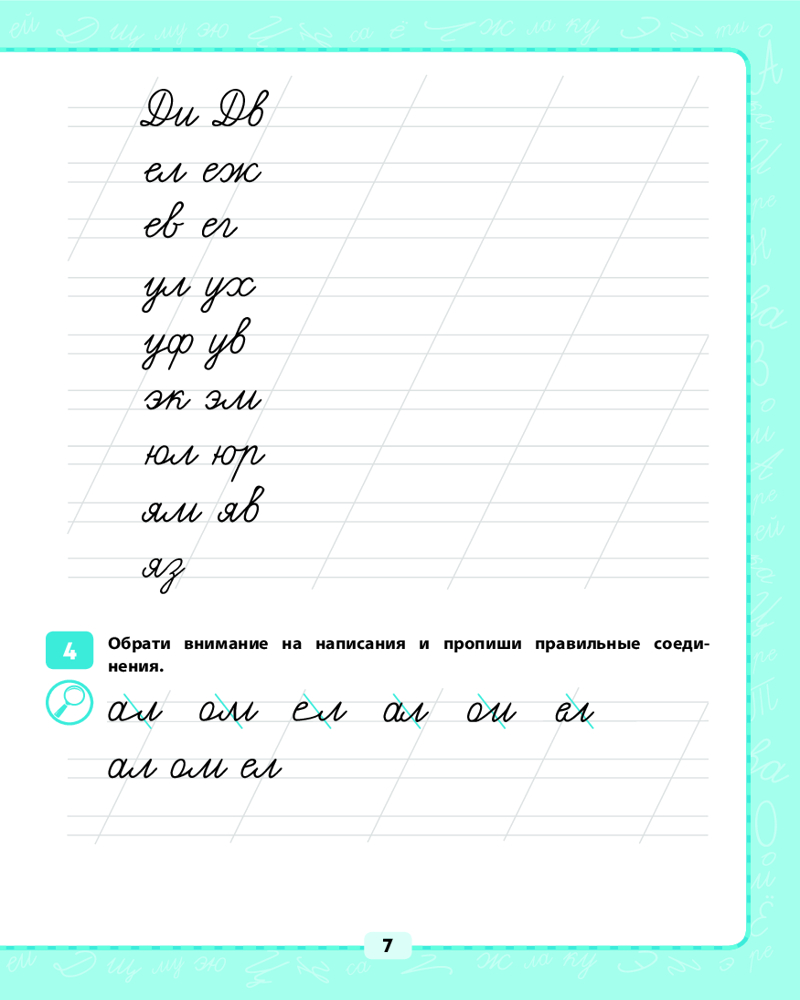 Ди Дв
ел еж
ев ег
ул ух
уф ув
эк эм
юл юр
ям яв
яз
4 Обрати внимание на написания и пропиши правильные соеди-
нения.
ал ом ел ал ом ел
ал ом ел
7